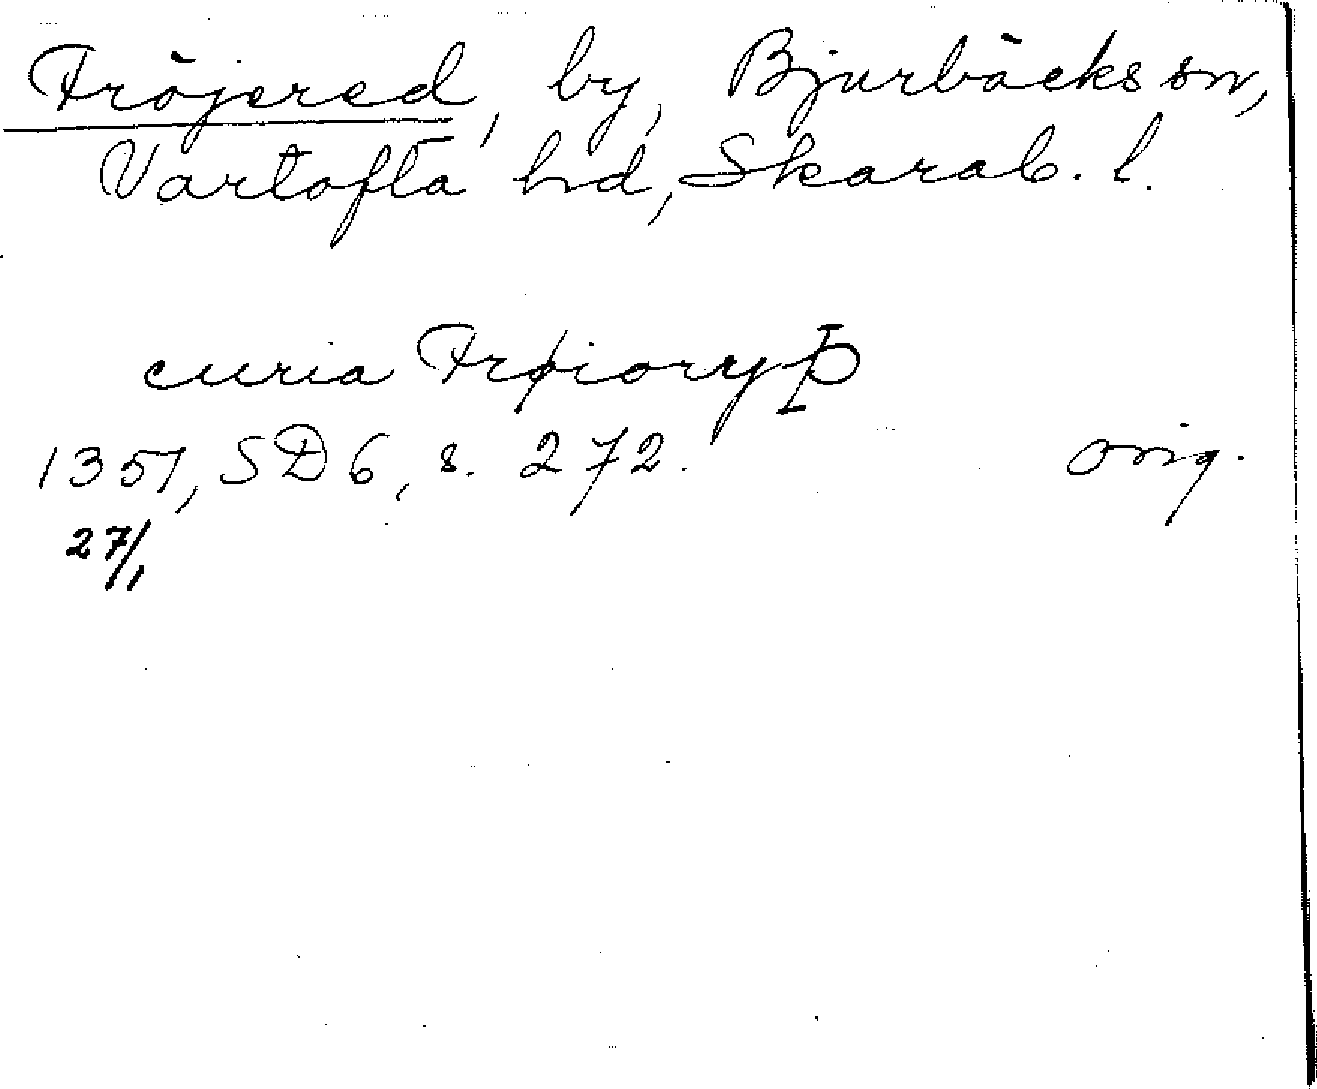 Fröjered, by, Bjurbäcks sn,
Vartofta hd, Skarab. l.
curia Frøioryþ
1351, SD 6, s. 272. orig.
27/1